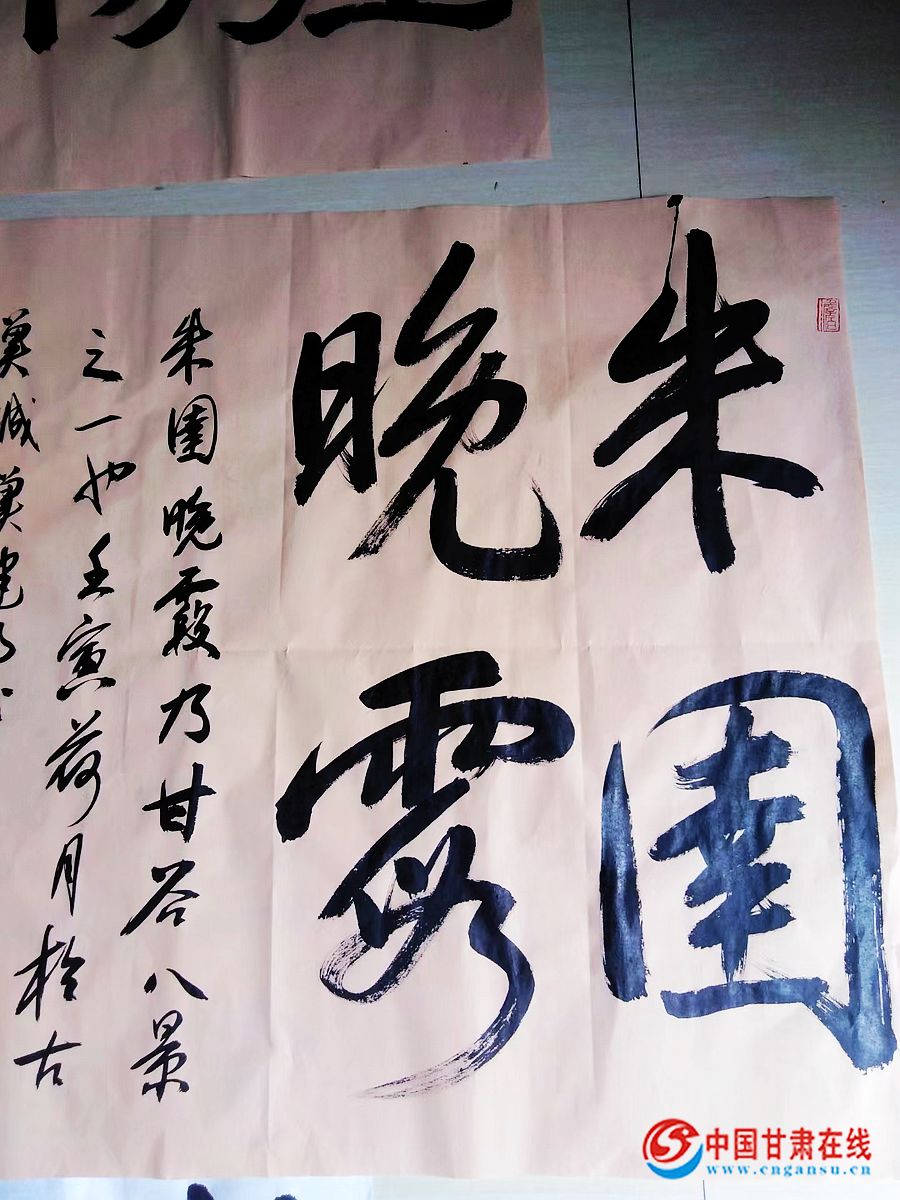 朱圉
晚霞
朱圉晚霞乃甘谷八景
之一也壬寅荷月於古
冀城
中国甘肃在线
www.cngansu.cn